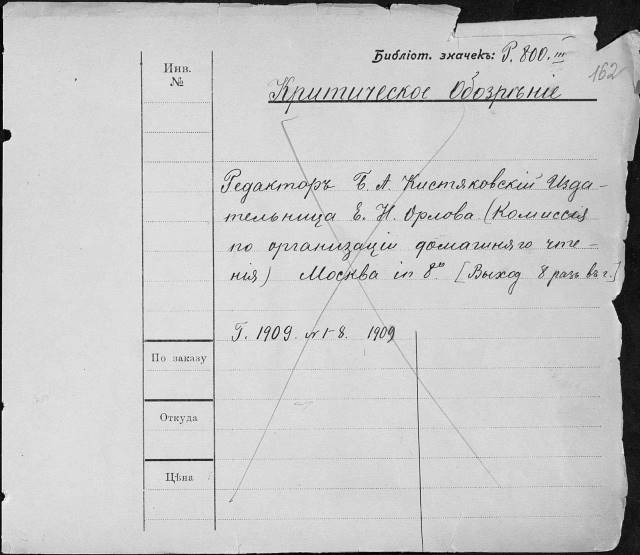 Библіот. значекъ: Р. 800. III
162
Инв.
№
Критическое Обозрѣніе
Редакторъ Б. А. Кистяковскій Изда-
тельница Е. Н. Орлова (Комиссія
по организаціи домашняго чте-
нія) Москва in 8º. [Выход 8 разъ въ г.]
Г. 1909. №1-8. 1909
По заказу
Откуда
Цѣна